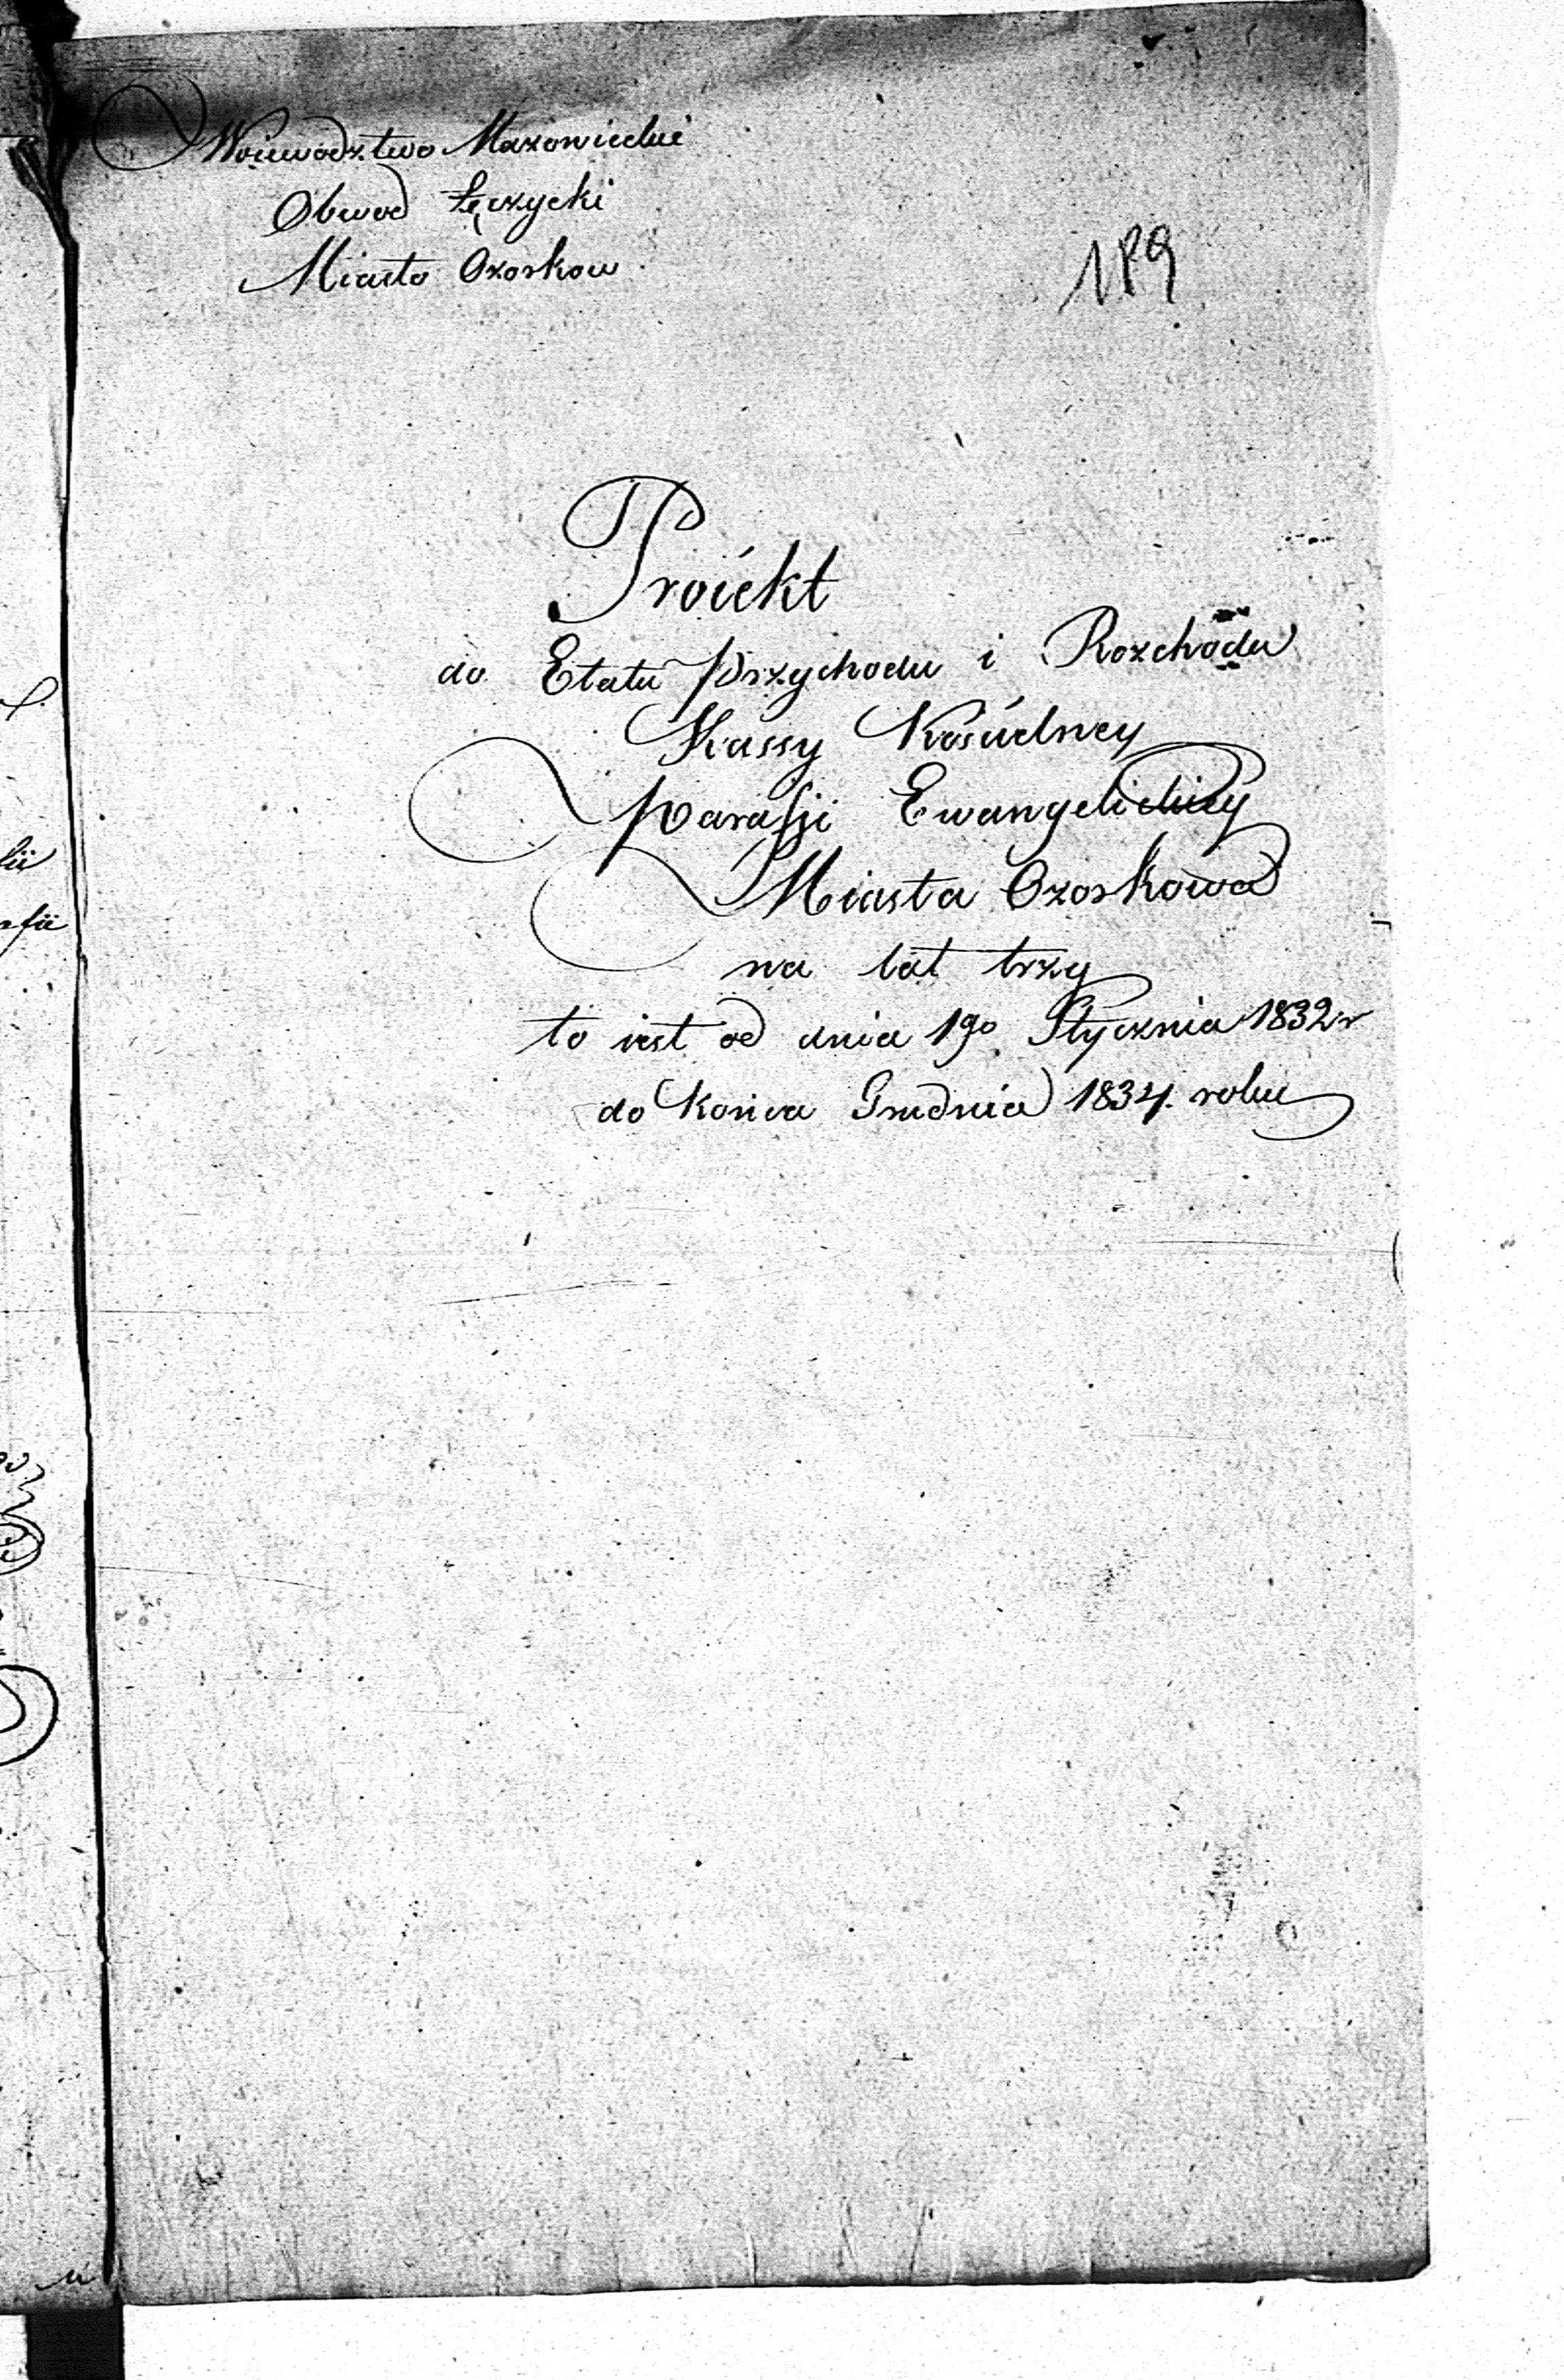 Woiewodztwo Mazowieckie
Obwod Łęczycki
Miasto Ozorkow
189
Proiekt
do Etatu przychodu i Rozchodu
Kassy Kościelney
parafii Ewangelickiey
Miasta Ozorkowa
na lat trzy
to iest od dnia 1go Stycznia 1832 r
do Końca Grudnia 1834. roku